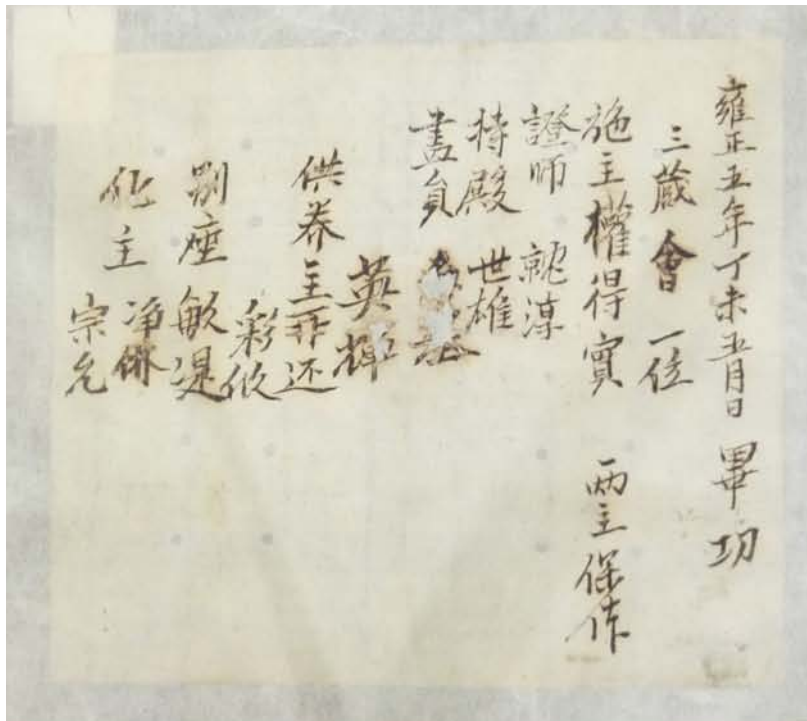 雍正五年丁未五月日 畢功
三蔵會 一位
施主權得實 兩主保体
證師 就淳
持殿 世雄
畫員
英輝
供养主 还
彩
別座 敏湜
化主 净
宗允